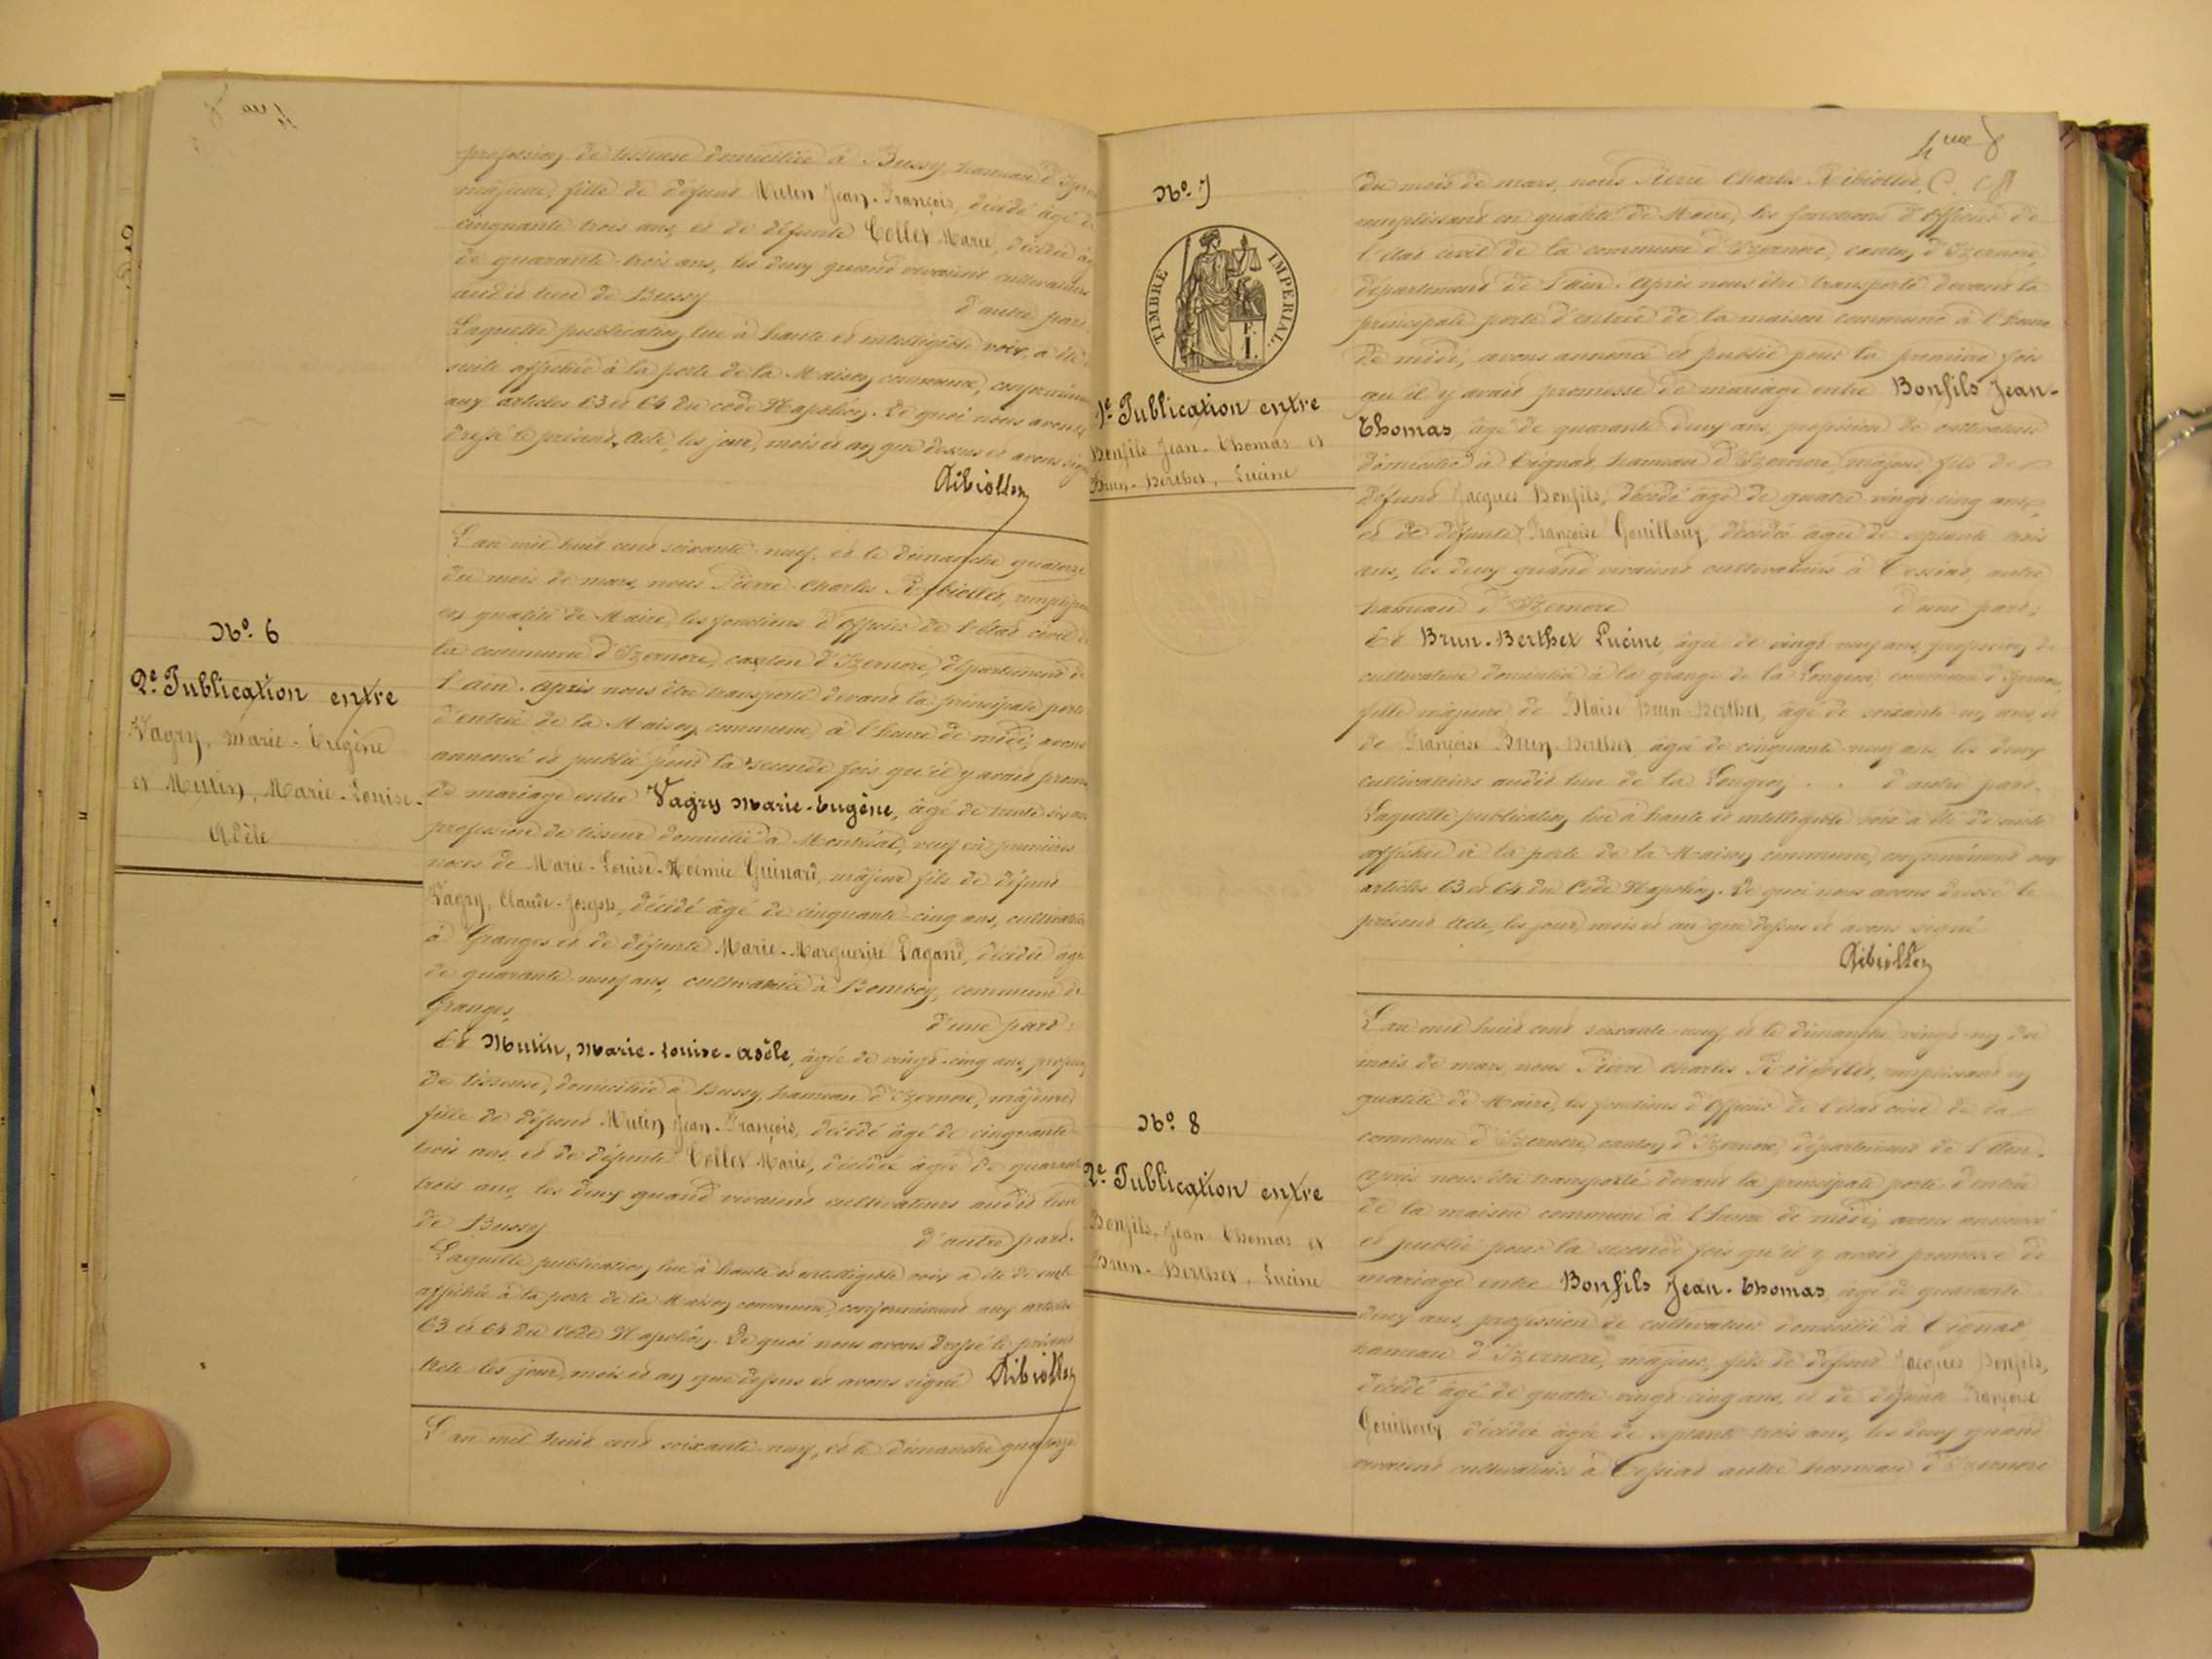 profession de tisseuse domiciliée à Bussy, hameau d'Izern
majeure, fille de défunt Mutin Jean-François, décédé âgé de
cinquante trois ans, et de défunte Collet Marie, décédée âg
de quarante-trois ans, les deux quand vivaient cultivateurs
audit lieu de Bussy d'autre part.
Laquelle publication, lue à haute et intelligible voix, a été de
suite affichée à la porte de la Maison commune, conformémen
aux articles 63 et 64 du code Napoléon. De quoi nous avons
dressé le présent Acte, les jour, mois et an que dessus et avons sig
Ribiollet
L'an mil huit cent soixante-neuf, et le dimanche quatorze
du mois de mars, nous Pierre-Charles Ribiollet, remplissan
en qualité de Maire, les fonctions d'Officier de l'état civil de
la commune d'Izernore, canton d'Izernore, département de
l'Ain. Après nous être transporté devant la principale porte
d'entrée de la Maison commune, à l'heure de midi, avons
annoncé et publié pour la seconde fois qu'il y avait prom
de mariage entre Vagry Marie-Eugène, âgé de trente six ans
profession de tisseur domicilié à Montréal, veuf en premières
noces de Marie-Louise-Noémie Guinard, majeur fils de défunt
Vagry, Claude-Joseph, décédé âgé de cinquante-cinq ans, cultivateur
à Granges et de défunte Marie-Marguerite Pagand, décédée âgée
de quarante-neuf ans, cultivatrice à Bomboy, commune de
Granges, d'une part:
Et Mutin, Marie-Louise-Adèle, âgée de vingt-cinq ans, profession
de tisseuse, domiciliée à Bussy, hameau d'Izernore, majeure,
fille de défunt Mutin Jean-François, décédé âgé de cinquante-
trois ans, et de défunte Collet Marie, décédée âgée de quarante
trois ans, les deux quand vivaient cultivateurs audit lieu
de Bussy d'autre part.
Laquelle publication, lue à haute et intelligible voix a été de suite
affichée à la porte de la Maison commune, conformément aux articles
63 et 64 du Code Napoléon. De quoi nous avons dressé le présent
Acte les jour, mois et an que dessus et avons signé Ribiollet
L'an mil huit cent soixante-neuf, et le dimanche quatorze
No. 6
2e Publication entre
Vagry, Marie-Eugène
et Mutin, Marie-Louise-
Adèle
4me
du mois de mars, nous Pierre Charles Ribiollet,
remplissant en qualité de Maire, les fonctions d'Officier de
l'état civil de la commune d'Izernore, canton d'Izernore,
département de l'Ain. Après nous être transporté devant la
principale porte d'entrée de la maison commune à l'heure
de midi, avons annoncé et publié pour la première fois
qu'il y avait promesse de mariage entre Bonfils Jean-
Thomas âgé de quarante deux ans, profession de cultivateur
domicilié à Tignat hameau d'Izernore, majeur, fils de
défunt Jacques Bonfils, décédé âgé de quatre vingt cinq ans,
et de défunte Françoise Gouilloux, décédée âgée de septante trois
ans, les deux quand vivaient cultivateurs à Tessiat, autre
hameau d'Izernore d'une part:
Et Brun-Berthet Lucine âgée de vingt-neuf ans, profession de
cultivatrice domiciliée à la grange de la Longeon, commune d'Izernore,
fille majeure de Blaise Brun-Berthet, âgé de soixante-un ans, et
de Françoise Brun-Berthet, âgée de cinquante-neuf ans, les deux
cultivateurs audit lieu de la Longeon . . d'autre part.
Laquelle publication, lue à haute et intelligible voix a été de suite
affichée à la porte de la Maison commune, conformément aux
articles 63 et 64 du Code Napoléon. De quoi nous avons dressé le
présent Acte, les jour, mois et an que dessus et avons signé
Ribiollet
L'an mil huit cent soixante-neuf, et le dimanche vingt-un du
mois de mars, nous Pierre Charles Ribiollet, remplissant en
qualité de Maire, les fonctions d'Officier de l'état civil de la
commune d'Izernore, canton d'Izernore, département de l'Ain.
Après nous être transporté devant la principale porte d'entrée
de la maison commune à l'heure de midi, avons annoncé
et publié pour la seconde fois qu'il y avait promesse de
mariage entre Bonfils Jean-Thomas, âgé de quarante
deux ans, profession de cultivateur domicilié à Tignat
hameau d'Izernore, majeur, fils de défunt Jacques Bonfils,
décédé âgé de quatre-vingt-cinq ans, et de défunte Françoise
Gouilloux décédée âgée de septante-trois ans, les deux quand
vivaient cultivateurs à Tessiat autre hameau d'Izernore
No. 7
TIMBRE IMPERIAL.
1e Publication entre
Bonfils Jean-Thomas et
Brun-Berthet, Lucine
No. 8
2e Publication entre
Bonfils, Jean-Thomas et
Brun-Berthet, Lucine